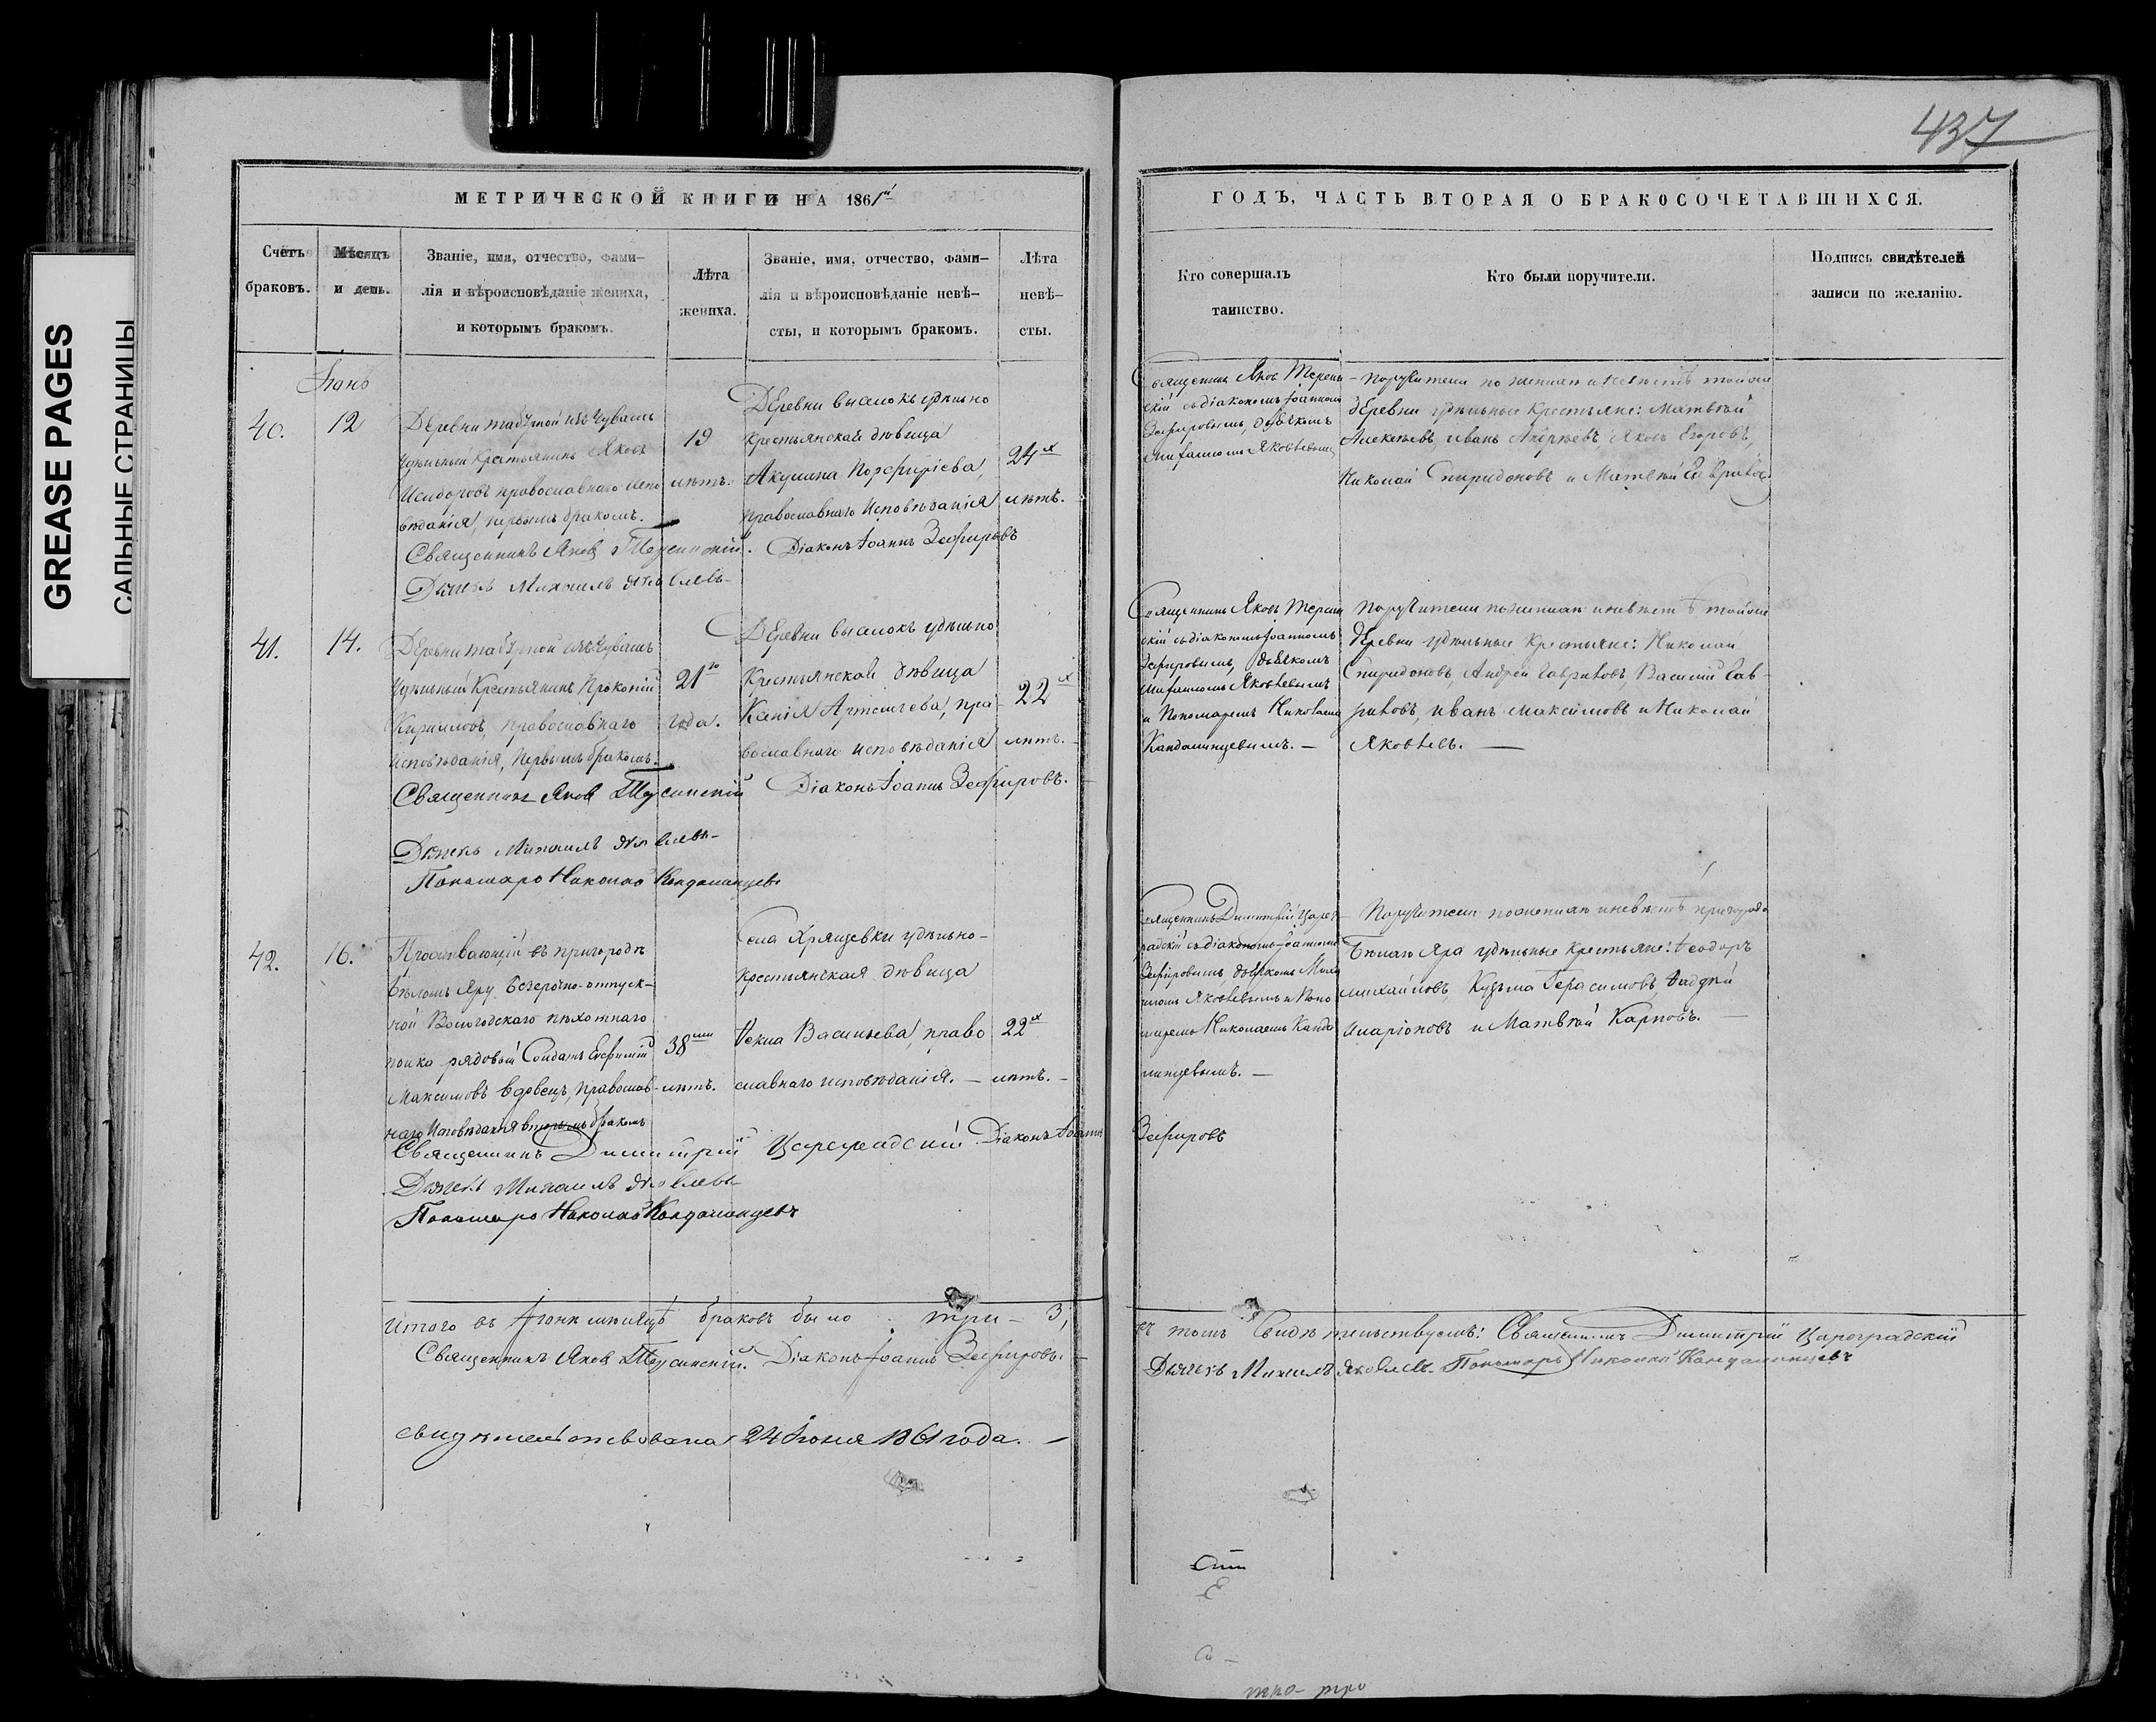 GREASE PAGES
САЛЬНЫЕ СТРАНИЦЫ
437
МЕТРИЧЕСКОЙ КНИГИ НА 1861й
Счетъ браковъ.
Мѣсяцъ и день.
Званіе, имя, отчество, фами-
лія и вѣроисповѣданіе жениха,
и которымъ бракомъ.
Лѣта
жениха.
Званіе, имя, отчество, фами-
лія и вѣроисповѣданіе невѣ-
сты, и которымъ бракомъ.
Лѣта
невѣ-
сты.
ГОДЪ, ЧАСТЬ ВТОРАЯ О БРАКОСОЧЕТАВШИХСЯ.
Кто совершалъ
таинство.
Кто были поручители.
Подпись свидѣтелей
записи по желанію.
40.
12
Деревни изъ Чувашъ
Удѣльный Крестьянинъ Яковъ
Исидоровъ православнаго испо
вѣданія, первымъ бракомъ.
19
лѣтъ.
Деревни Выселокъ удѣльно
крестьянская дѣвица
Акулина Порфиріева,
православнаго исповѣданія
24х
лѣтъ.
Священникъ Яковъ Терсин
скій съ діакономъ Іоанномъ
Зефировымъ, дьячкомъ
Михаиломъ Яковлевымъ
Поручители по женихѣ и невѣстѣ тойже
деревни удѣльные крестьяне: Матвѣй
Алексѣевъ, Иванъ Андреевъ, Яковъ Егоровъ,
Николай Спиридоновъ и Матвѣй Гавриловъ.
Священникъ Яковъ Терсинскій. Діаконъ Іоаннъ Зефировъ
Дьячекъ Михаилъ Яковлевъ
41.
14.
Деревни изъ Чувашъ
Удѣльный Крестьянинъ Прокопій
Кирилловъ, православнаго
исповѣданія, первымъ бракомъ.
21го
года.
Деревни Выселокъ удѣльно
Крестьянская дѣвица
Ксенія Артемьева, пра-
вославнаго исповѣданія
22х
лѣтъ.
Священникъ Яковъ Терсин
скій съ діакономъ Іоанномъ
Зефировымъ, дьячкомъ
Михаиломъ Яковлевымъ
и Пономаремъ Николаемъ
Кандалинцевымъ.
Поручители по женихѣ и невѣстѣ тойже
деревни удѣльные крестьяне: Николай
Спиридоновъ, Андрей Гавриловъ, Василій Гав-
риловъ, Иванъ Максимовъ и Николай
Яковлевъ.
Священникъ Яковъ Терсинскій Діаконъ Іоаннъ Зефировъ.
Дьячекъ Михаилъ Яковлевъ
Пономарь Николай Кандалинцевъ
42.
16.
Проживающій въ пригородѣ
Бѣломъ Яру безсрочно-отпуск-
ной Вологодскаго пѣхотнаго
полка рядовый Солдатъ Евфимій
Максимовъ вдовецъ, православ-
наго исповѣданія вторымъ бракомъ
38ми
лѣтъ.
Села Хрящевки удѣльно-
крестьянская дѣвица
Ѳекла Васильева, право
славнаго исповѣданія.
22х
лѣтъ.
Священникъ Димитрій Царег-
радскій съ діакономъ Іоанномъ
Зефировымъ, дьячкомъ Миха
иломъ Яковлевымъ и Поно
маремъ Николаемъ Канда
линцевымъ.
Поручители по женихѣ и невѣстѣ пригорода
Бѣлаго Яра удѣльные крестьяне: Ѳеодоръ
Михайловъ, Кузьма Герасимовъ, Ѳаддей
Иларіоновъ и Матвѣй Карповъ.
Священникъ Димитрій Цареградскій Діаконъ Іоаннъ Зефировъ
Дьячекъ Михаилъ Яковлевъ
Пономарь Николай Кандалинцевъ
Итого въ Іюнѣ мѣсяцѣ браковъ было три - 3,
въ томъ свидѣтельствуемъ: Священникъ Димитрій Цареградскій
Священникъ Яковъ Терсинскій. Діаконъ Іоаннъ Зефировъ.
Дьячекъ Михаилъ Яковлевъ. Пономарь Николай Кандалинцевъ
Свидѣтельствована 24 Іюня 1861 года.